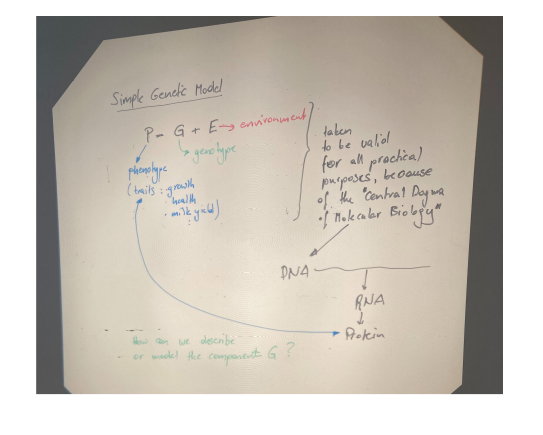 Simple Genetic Model
P = G + E → environment
genotype
phenotype
(traits : growth
· health
· milk yield)
taken
to be valid
for all practical
purposes, because
of the "Central Dogma
of Molecular Biology"
DNA
RNA
Protein
How can we describe
or model the component G ?